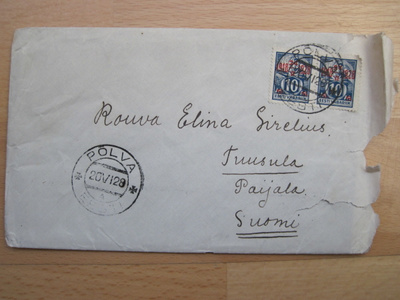 PÕLVA
10 10
Rouva Elina Sirelius.
Tuusula
Paijala.
Suomi
PÕLVA
20 VI 28